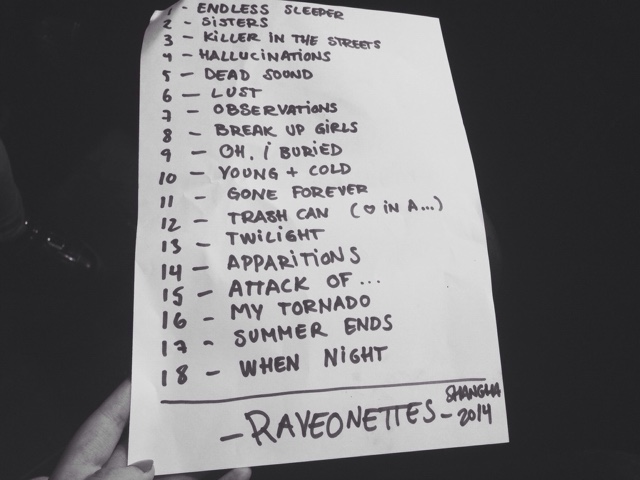 1 - ENDLESS SLEEPER
2 - SISTERS
3 - KILLER IN THE STREETS
4 - HALLUCINATIONS
5 - DEAD SOUND
6 - LUST
7 - OBSERVATIONS
8 - BREAK UP GIRLS
9 - OH, I BURIED
10 - YOUNG + COLD
11 - GONE FOREVER
12 - TRASH CAN (♡ IN A...)
13 - TWILIGHT
14 - APPARITIONS
15 - ATTACK OF...
16 - MY TORNADO
17 - SUMMER ENDS
18 - WHEN NIGHT
- RAVEONETTES - SHANGHA
2014